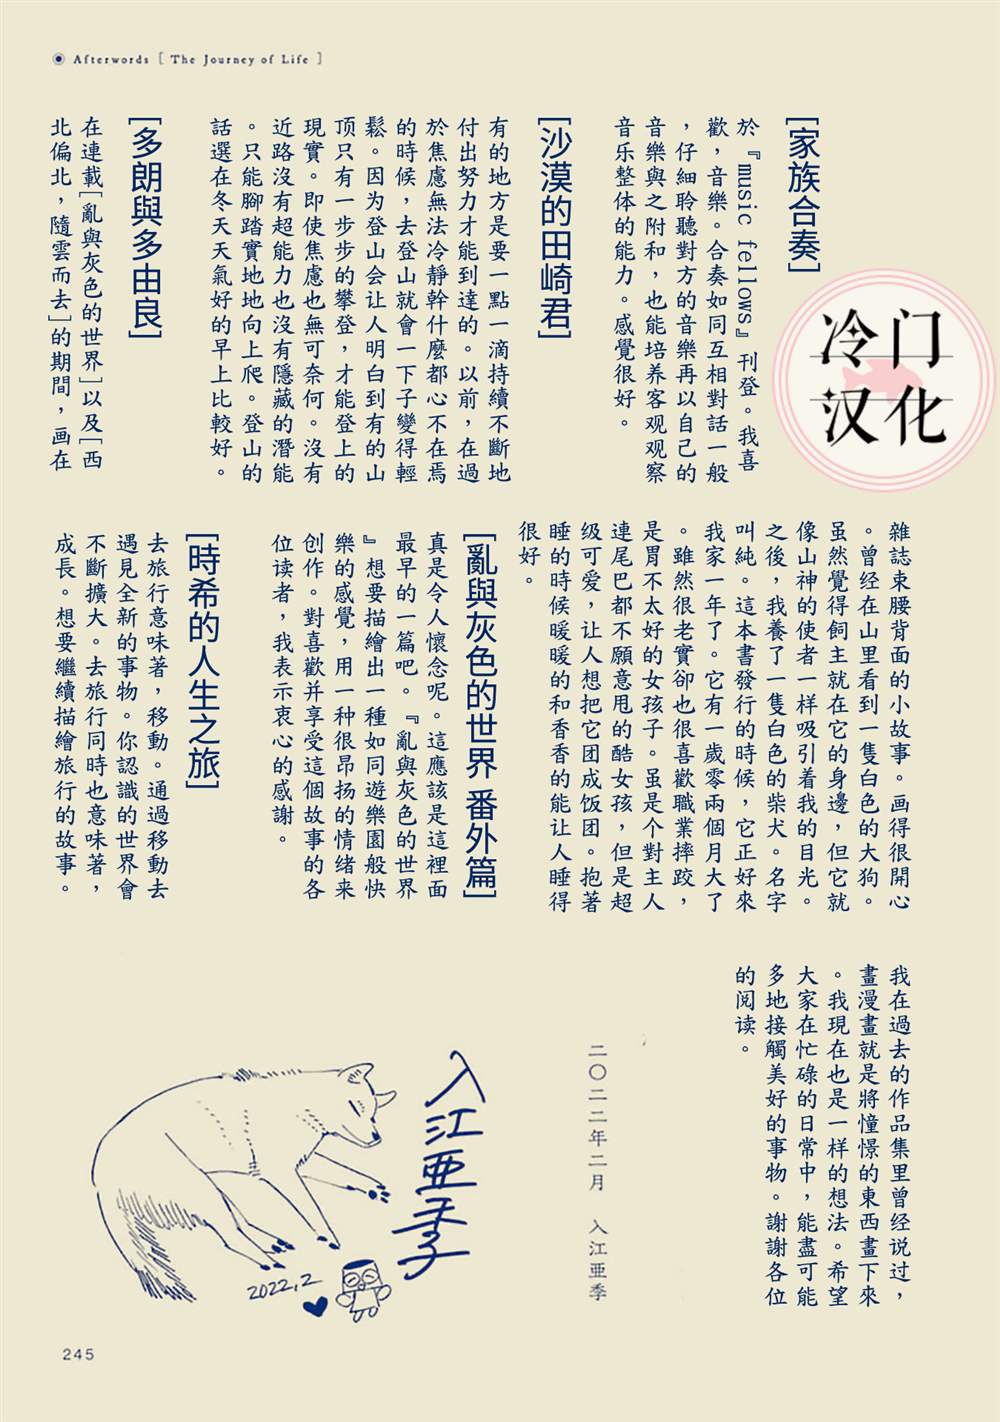 Afterwords [ The Journey of Life ]
[家族合奏]
於『music fellows』刊登。我喜
歡，音樂。合奏如同互相對話一般
，仔細聆聽對方的音樂再以自己的
音樂與之附和，也能培养客观观察
音乐整体的能力。感覺很好。
[沙漠的田崎君]
有的地方是要一點一滴持續不斷地
付出努力才能到達的。以前，在過
於焦慮無法冷靜幹什麼都心不在焉
的時候，去登山就會一下子變得輕
鬆。因为登山会让人明白到有的山
顶只有一步步的攀登，才能登上的
現實。即使焦慮也無可奈何。沒有
近路沒有超能力也沒有隱藏的潛能
。只能腳踏實地地向上爬。登山的
話選在冬天天氣好的早上比較好。
[多朗與多由良]
在連載[亂與灰色的世界]以及[西
北偏北，隨雲而去]的期間，画在
雜誌束腰背面的小故事。画得很開心
。曾经在山里看到一隻白色的大狗。
虽然覺得飼主就在它的身邊，但它就
像山神的使者一样吸引着我的目光。
之後，我養了一隻白色的柴犬。名字
叫純。這本書發行的時候，它正好來
我家一年了。它有一歲零兩個月大了
。雖然很老實卻也很喜歡職業摔跤，
是胃不太好的女孩子。虽是个對主人
連尾巴都不願意甩的酷女孩，但是超
级可爱，让人想把它团成饭团。抱著
睡的時候暖暖的和香香的能让人睡得
很好。
[亂與灰色的世界 番外篇]
真是令人懷念呢。這應該是這裡面
最早的一篇吧。『亂與灰色的世界
』想要描繪出一種如同遊樂園般快
樂的感覺，用一种很昂扬的情绪来
创作。對喜歡并享受這個故事的各
位读者，我表示衷心的感謝。
[時希的人生之旅]
去旅行意味著，移動。通過移動去
遇見全新的事物。你認識的世界會
不斷擴大。去旅行同時也意味著，
成長。想要繼續描繪旅行的故事。
我在過去的作品集里曾经说过，
畫漫畫就是將憧憬的東西畫下來
。我現在也是一样的想法。希望
大家在忙碌的日常中，能盡可能
多地接觸美好的事物。謝謝各位
的阅读。
二〇二二年二月 入江亜季
入江亜季
2022,2
冷门
汉化
245